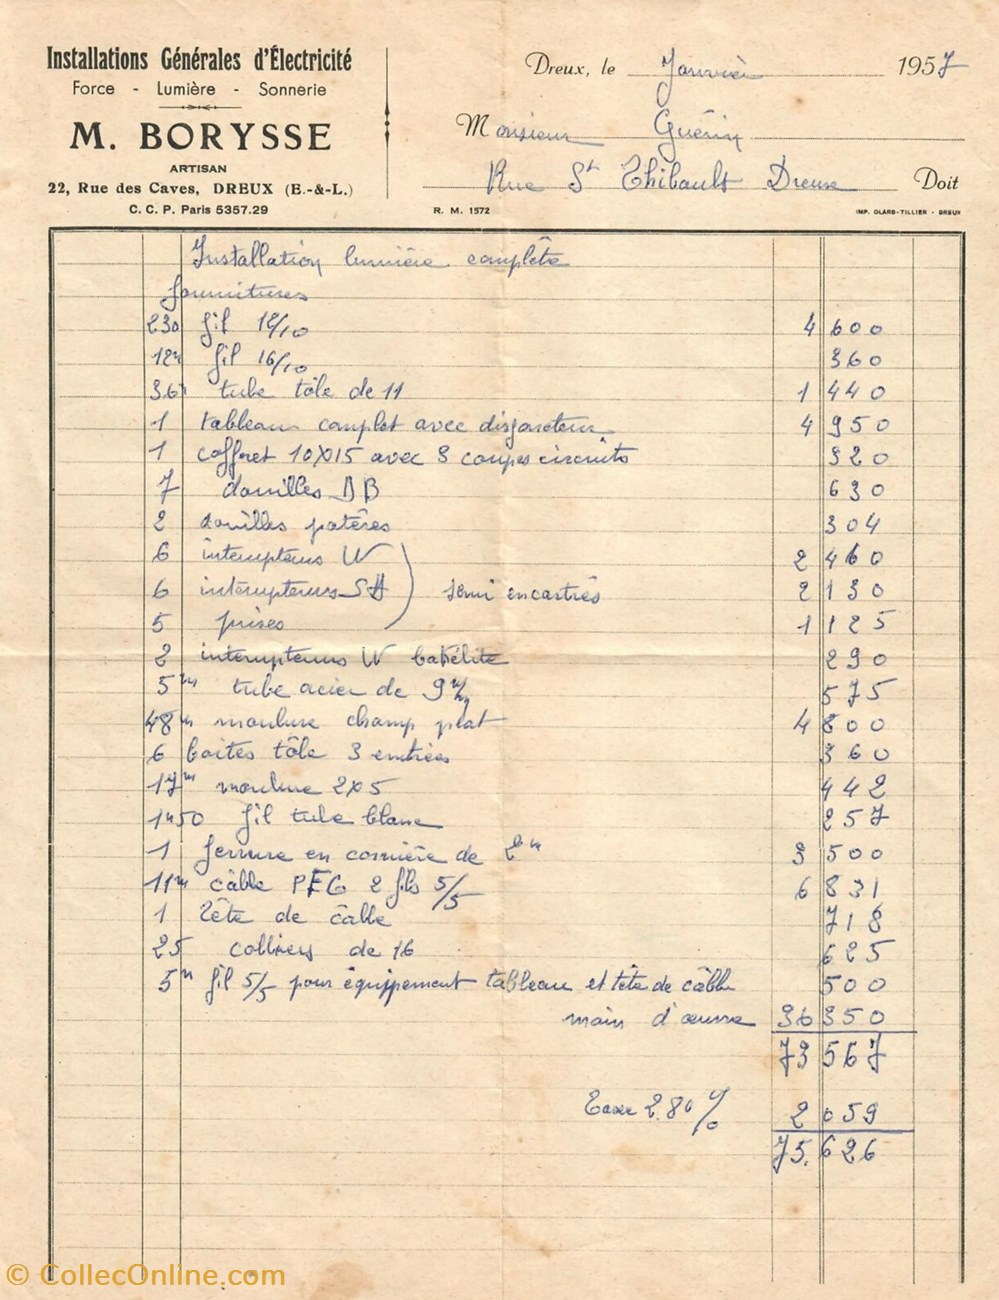 Installations Générales d'Électricité
Force - Lumière - Sonnerie
M. BORYSSE
ARTISAN
22, Rue des Caves, DREUX (E.-&-L.)
C. C. P. Paris 5357.29
Dreux, le Janvier 1957
Monsieur Guérin
Rue St Thibault Dreux Doit
R. M. 1572
IMP. OLARD-TILLIER - DREUX
Installation lumière complète
fournitures
230 fil 12/10 4 600
12m fil 16/10 360
36m tube tôle de 11 1 440
1 tableau complet avec disjoncteur 4 950
1 coffret 10X15 avec 3 coupes circuits 320
7 douilles DB 630
2 douilles patères 304
6 interrupteurs W 2 460
6 interrupteurs SA semi encastrés 2 130
5 prises 1 125
2 interrupteurs W bakélite 290
5m tube acier de 9 m/m 575
48m moulure champ plat 4 800
6 boites tôle 3 entrées 360
17m moulure 2X5 442
1m50 fil tube blanc 257
1 ferrure en cornière de 2m 3 500
11m câble PFG 2 fils 5/5 6 831
1 Tête de câble 718
25 colliers de 16 625
5m fil 5/5 pour équippement tableau et tête de câble 500
main d'œuvre 36 350
73 567
Taxe 2.80 % 2 059
75.626
© CollecOnline.com